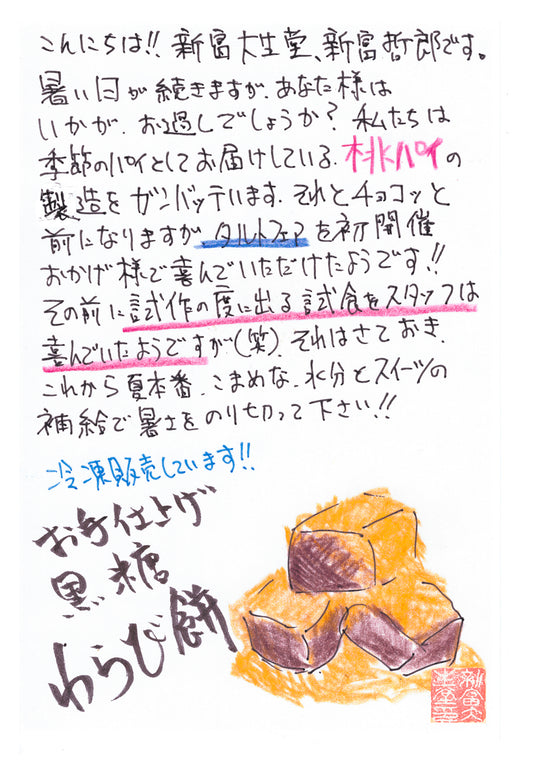 こんにちは!! 新冨大生堂、新冨哲郎です。
暑い日が続きますが、あなた様は
いかが、お過しでしょうか? 私たちは
季節のパイとしてお届けしている、桃パイの
製造をガンバッテいます。それとチョコッと
前になりますが、タルトフェアを初開催
おかげ様で喜んでいただけたようです!!
その前に試作の度に出る試食をスタッフは
喜んでいたようですが(笑)、それはさておき、
これから夏本番、こまめな、水分とスイーツの
補給で暑さをのり切って下さい!!
冷凍販売しています!!
お手仕上げ
黒糖
わらび餅